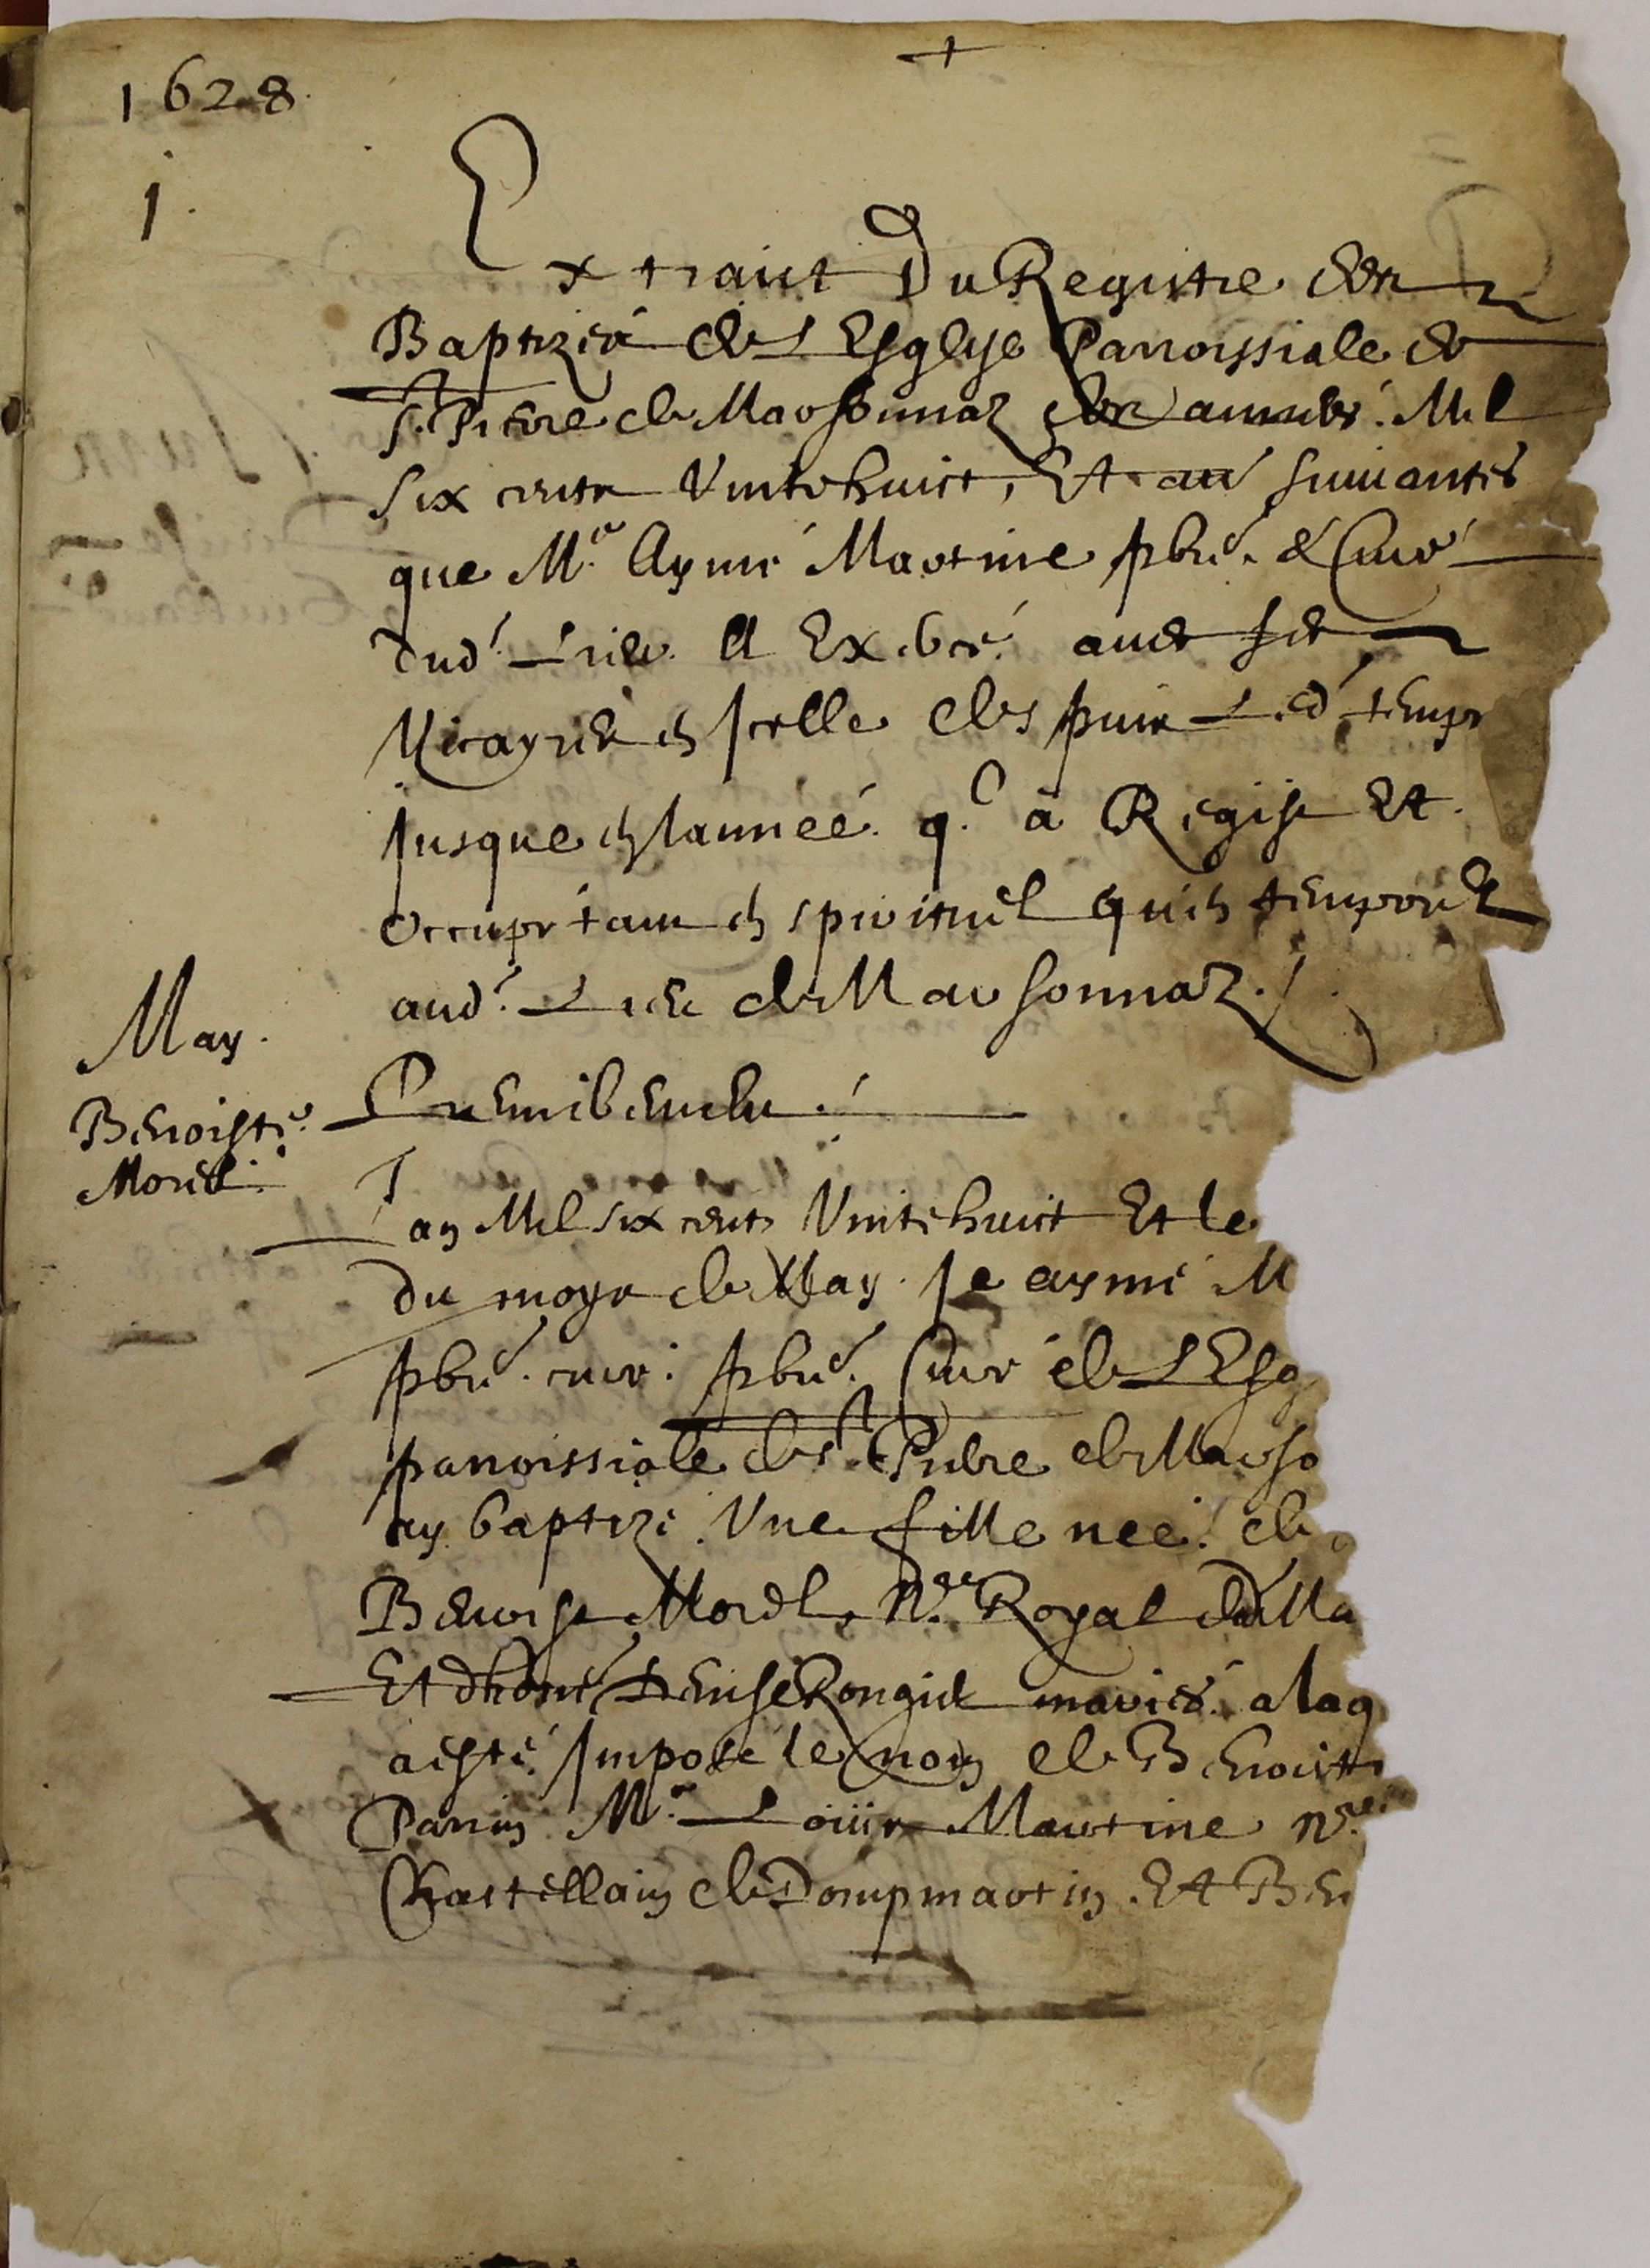 1628
1
Extraict Du Registre des
Baptizés de L Esglise Parroissiale de
St. Pierre de Marsonnaz des années Mil
Six cents Vintehuict, Et au suiuantes
que Mre. Aymé Martine pbre. & Curé
dud. Lieu A Exercé auec ses
Vicayres en Icelle Despuis Led temps
Jusque en lannéé q. a Regist Et
occupe tant en spirituel quen temporel
aud. Lieu de Marsonnaz.
May.
Benoiste
Morel.
Premierement
Lan Mil six cents Vintehuict Et le
du moys de May. Je aymé M
pbre. curé pbre. Curé de L Esg
parroissiale de St. Pierre de Marso
ay baptizé Vne fille neé de
Benoist Morel No.re Royal Ma
Et dhone Denise Rongid mariés. a laq
a esté Imposé le nom de Benoiste
Parrin Mre. Loüis Martine No.re
Chastellain de Dompmartin. Et Ben